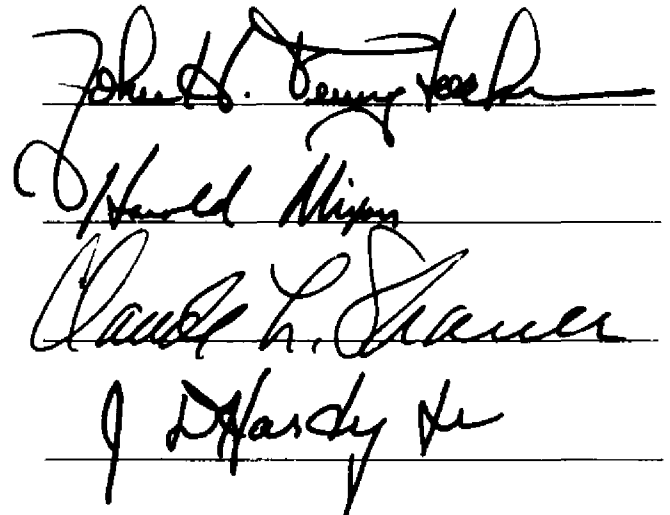 John H. Pennybacker
Harold Mixon
Claude L. Shaver
J D Hardy Jr